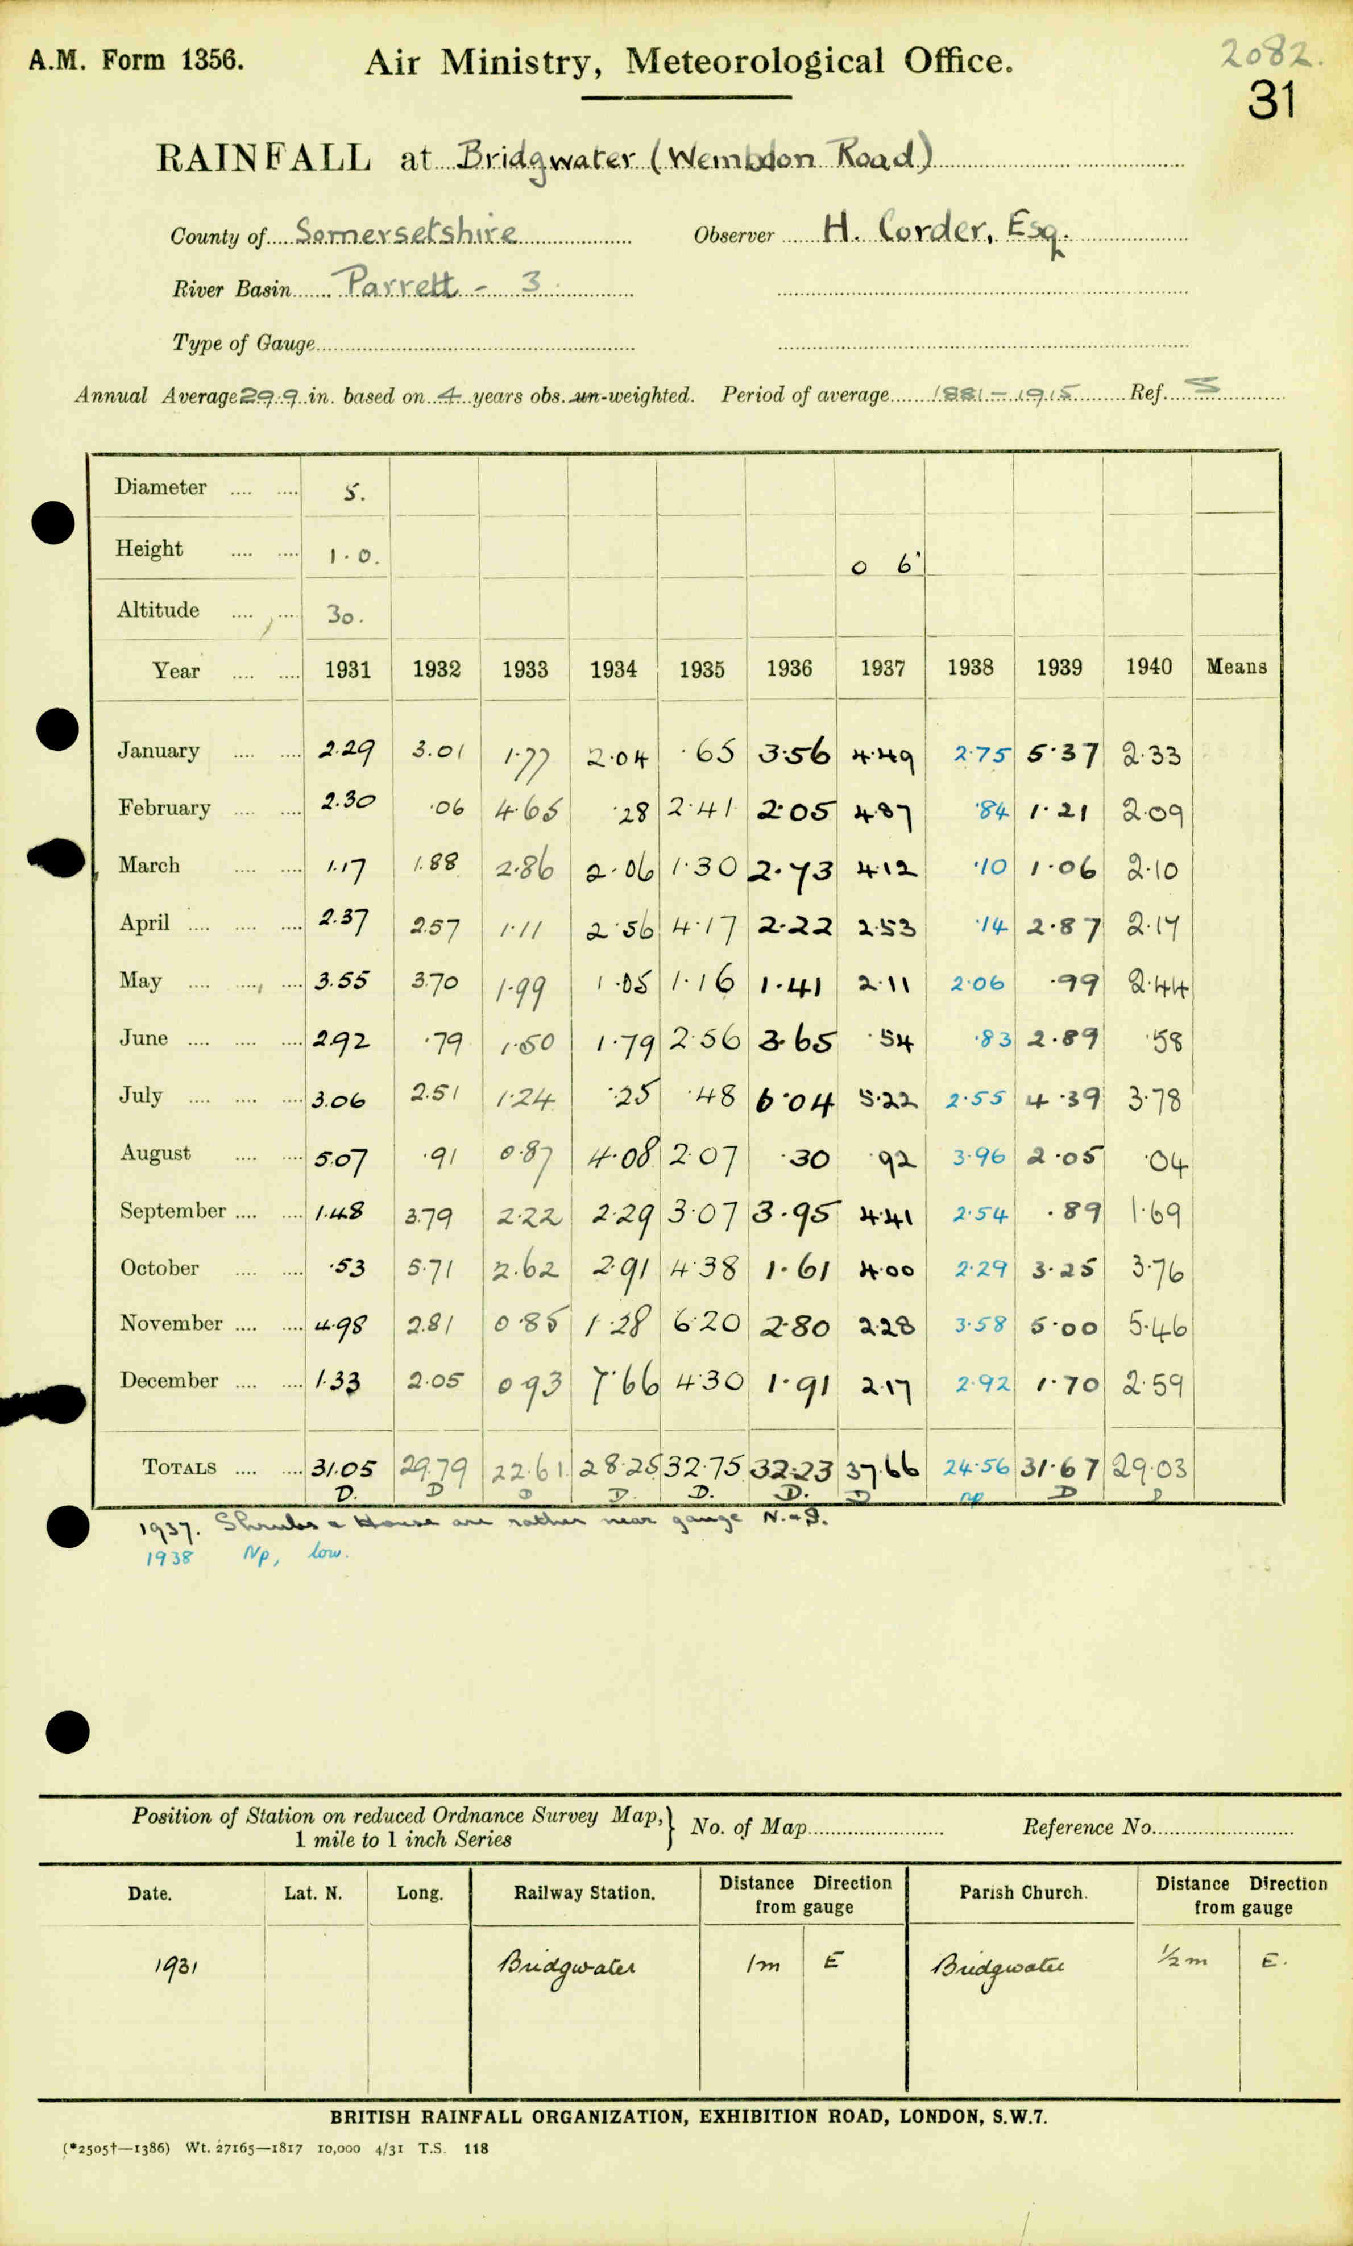 A.M. Form 1356.
Air Ministry, Meteorological Office.
2082.
31
RAINFALL at Bridgwater (Wembdon Road)
County of Somersetshire Observer H. Corder, Esq.
River Basin Parrett - 3
Type of Gauge
Annual Average 29.9 in. based on 4 years obs. un-weighted. Period of average 1881-1915 Ref. S
Diameter 5.
Height 1.0. 0 6'
Altitude 30.
Year 1931 1932 1933 1934 1935 1936 1937 1938 1939 1940 Means
January 2.29 3.01 1.77 2.04 .65 3.56 4.49 2.75 5.37 2.33
February 2.30 .06 4.65 .28 2.41 2.05 4.87 .84 1.21 2.09
March 1.17 1.88 2.86 2.06 1.30 2.73 4.12 .10 1.06 2.10
April 2.37 2.57 1.11 2.56 4.17 2.22 2.53 .14 2.87 2.17
May 3.55 3.70 1.99 1.05 1.16 1.41 2.11 2.06 .99 2.44
June 2.92 .79 1.50 1.79 2.56 3.65 .54 .83 2.89 .58
July 3.06 2.51 1.24 .25 .48 6.04 5.22 2.55 4.39 3.78
August 5.07 .91 0.87 4.08 2.07 .30 .92 3.96 2.05 .04
September 1.48 3.79 2.22 2.29 3.07 3.95 4.41 2.54 .89 1.69
October .53 5.71 2.62 2.91 4.38 1.61 4.00 2.29 3.25 3.76
November 4.98 2.81 0.85 1.28 6.20 2.80 2.28 3.58 5.00 5.46
December 1.33 2.05 0.93 7.66 4.30 1.91 2.17 2.92 1.70 2.59
TOTALS 31.05 29.79 22.61 28.25 32.75 32.23 37.66 24.56 31.67 29.03
D. D D D. D. D. D np D D
1937. Shrubs & House are rather near gauge N. & S.
1938 Np, low.
Position of Station on reduced Ordnance Survey Map, } No. of Map Reference No.
1 mile to 1 inch Series
Date. Lat. N. Long. Railway Station. Distance Direction from gauge Parish Church. Distance Direction from gauge
1931 Bridgwater 1m E Bridgwater 1/2 m E.
BRITISH RAINFALL ORGANIZATION, EXHIBITION ROAD, LONDON, S.W.7.
(*2505†—1386) Wt. 27165—1817 10,000 4/31 T.S. 118